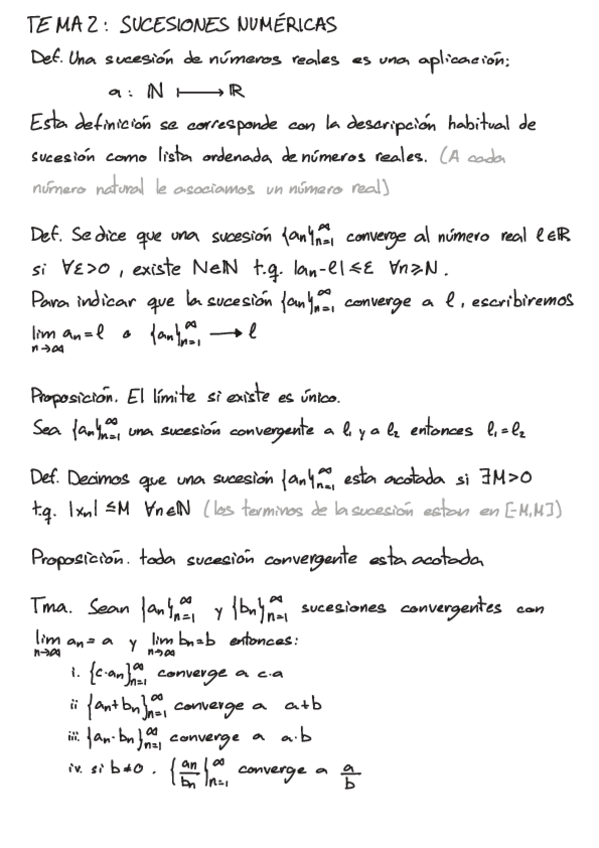 TEMA 2: SUCESIONES NUMÉRICAS
Def. Una sucesión de números reales es una aplicación:
a: ℕ ⟼ ℝ
Esta definición se corresponde con la descripción habitual de
sucesión como lista ordenada de números reales. (A cada
número natural le asociamos un número real)
Def. Se dice que una sucesión {an}∞n=1 converge al número real l∈ℝ
si ∀ε>0, existe N∈ℕ t.q. |an-l|≤ε ∀n≥N.
Para indicar que la sucesión {an}∞n=1 converge a l, escribiremos
lim n→∞ an=l o {an}∞n=1 ⟶ l
Proposición. El límite si existe es único.
Sea {an}∞n=1 una sucesión convergente a l1 y a l2 entonces l1=l2
Def. Decimos que una sucesión {an}∞n=1 esta acotada si ∃M>0
t.q. |xn| ≤M ∀n∈ℕ (los terminos de la sucesión estan en [-M,M])
Proposición. toda sucesión convergente esta acotada
Tma. Sean {an}∞n=1 y {bn}∞n=1 sucesiones convergentes con
lim n→∞ an=a y lim n→∞ bn=b entonces:
i. {c·an}∞n=1 converge a c·a
ii {an+bn}∞n=1 converge a a+b
iii. {an·bn}∞n=1 converge a a·b
iv. si b≠0. {an/bn}∞n=1 converge a a/b